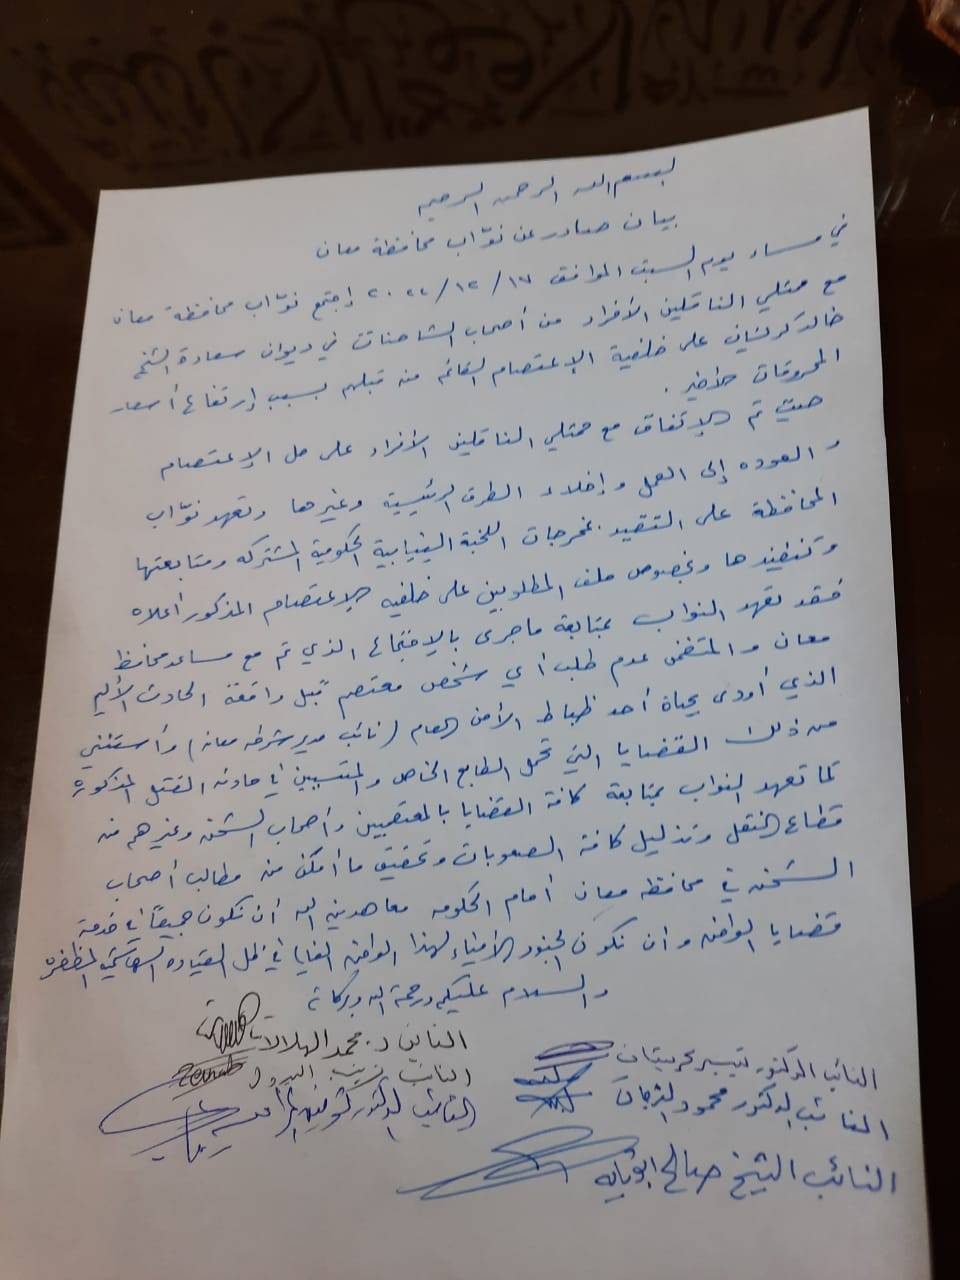 بسم الله الرحمن الرحيم
بيان صادر عن نوّاب محافظة معان
في مساء يوم السبت الموافق ١٧/١٢/٢٠٢٢ إجتمع نوّاب محافظة معان
مع ممثلي الناقلين الأفراد من أصحاب الشاحنات في ديوان سعادة الشيخ
خالد كريشان على خلفية الإعتصام القائم من قبلهم بسبب إرتفاع أسعار
المحروقات الأخير .
حيث تم الإتفاق مع ممثلي الناقلين الأفراد على حل الإعتصام
و العوده إلى العمل وإخلاء الطرق الرئيسية وغيرها وتعهد نوّاب
المحافظة على التقيد بمخرجات اللجنة النيابية الحكومية المشتركه ومتابعتها
وتنفيذها وبخصوص ملف المطلوبين على خلفيه الإعتصام المذكور أعلاه
فقد تعهد النواب بمتابعة ماجرى بالإجتماع الذي تم مع مساعد محافظ
معان والمتضمن عدم طلب أي شخص معتصم قبل واقعة الحادث الأليم
الذي أودى بحياة أحد ظباط الأمن العام (نائب مدير شرطه معان) وأستثني
من ذلك القضايا التي تحمل الطابع الخاص والمتسببين في حادثه القتل المذكورة
كما تعهد النواب بمتابعة كافة القضايا بالمعتصمين وأصحاب الشحن وغيرهم من
قطاع النقل وتذليل كافة الصعوبات وتحقيق ما أمكن من مطالب أصحاب
الشحن في محافظه معان أمام الحكومه معاهدين الله أن نكون جميعاً في خدمة
قضايا الوطن وان نكون الجنود الأمناء لهذا الوطن الغالي في ظل القياده الهاشمية المظفره
والسلام عليكم ورحمة الله وبركاته
النائب د. محمد الهلالات
النائب زينب البدول
zeinab
النائب الدكتور تيسير كريشان
النائب الدكتور محمود
النائب الدكتور
النائب الشيخ صالح ابوتايه